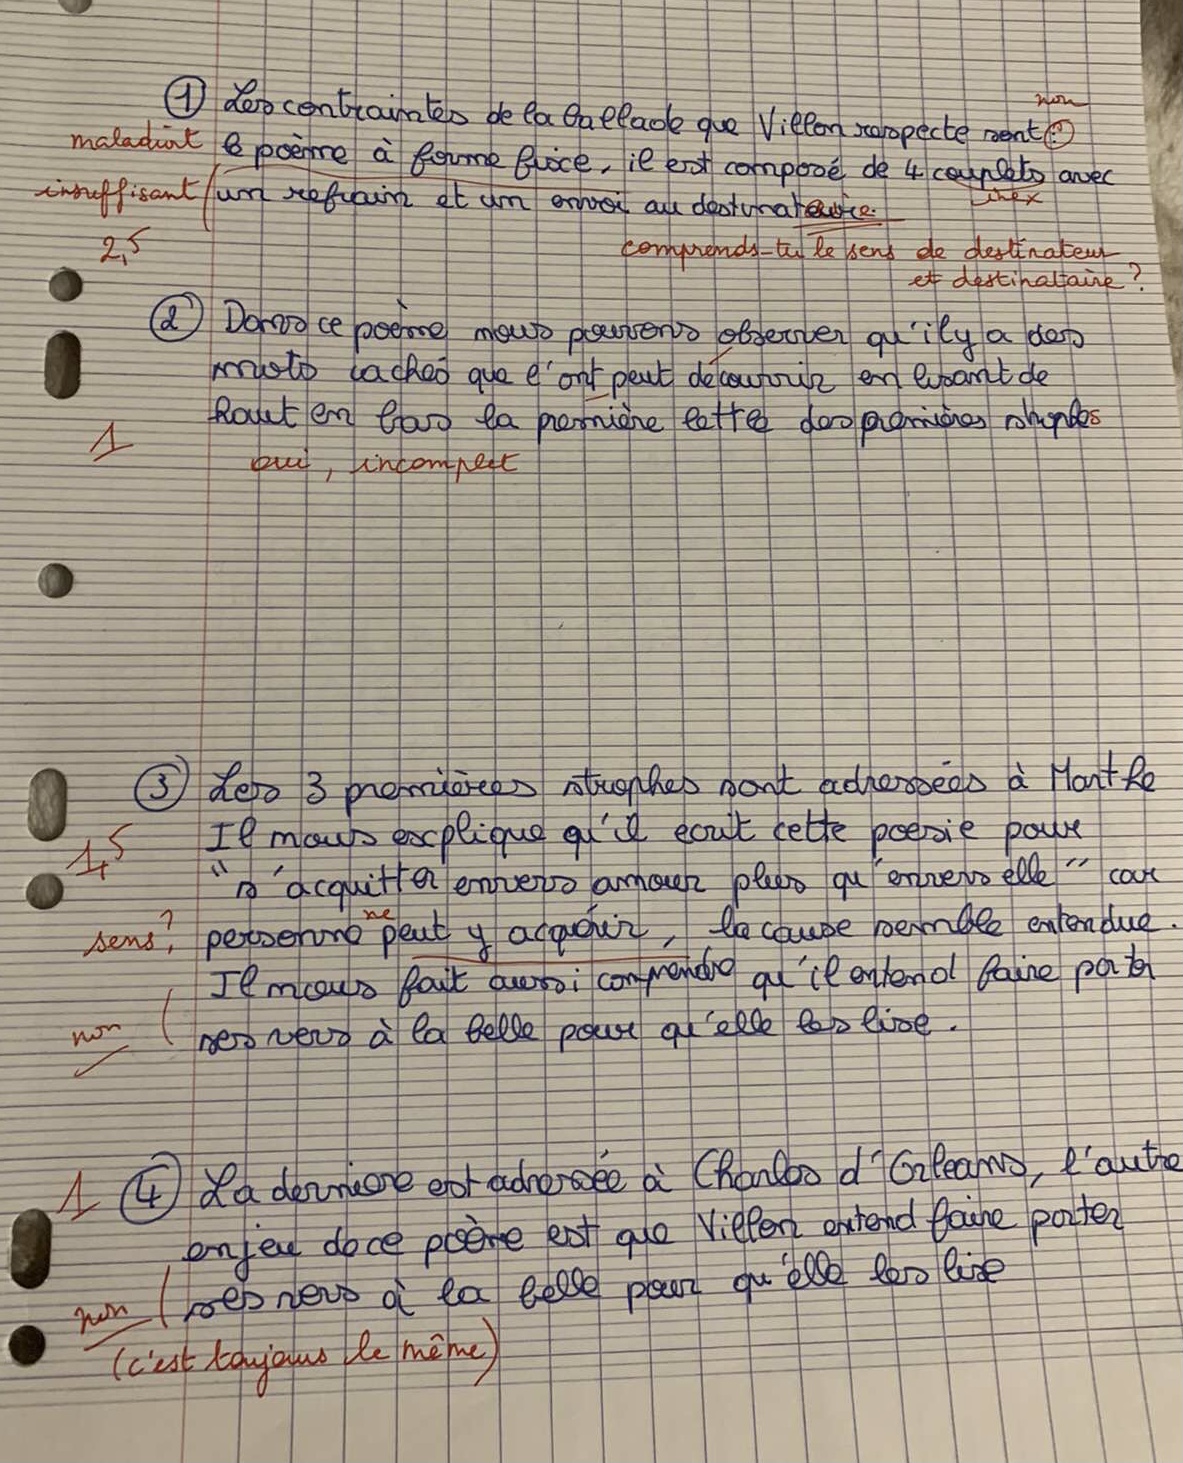 non
① Les contraintes de la ballade que Villon respecte sont :
maladroit le poème à forme fixe, il est composé de 4 couplets avec
insuffisant un refrain et un envoi au destinatauire.
inex
2,5
comprends-tu le sens de destinateur
et destinataire ?
② Dans ce poème nous pouvons observer qu'il y a des
mots cachés que l'ont peut découvrir en lisant de
haut en bas la première lettre des premières strophes
1
oui, incomplet
③ Les 3 premières strophes sont adressées à Marthe
Il nous explique qu'il ecrit cette poesie pour
1,5
"s'acquitter envers amour plus qu'envers elle" car
ne
sens? personne peut y acquérir, la cause semble entendue.
Il nous fait aussi comprendre qu'il entend faire porter
non ses vers à la belle pour qu'elle les lise.
1 ④ La derniere est adressée à Charles d'Orleans, l'autre
enjeu de ce poème est que Villon entend faire porter
non ses vers à la belle pour qu'elle les lise
(c'est toujours le même)